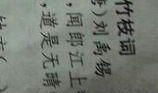 竹枝词
)刘禹锡
，闻郎江上
，道是无晴